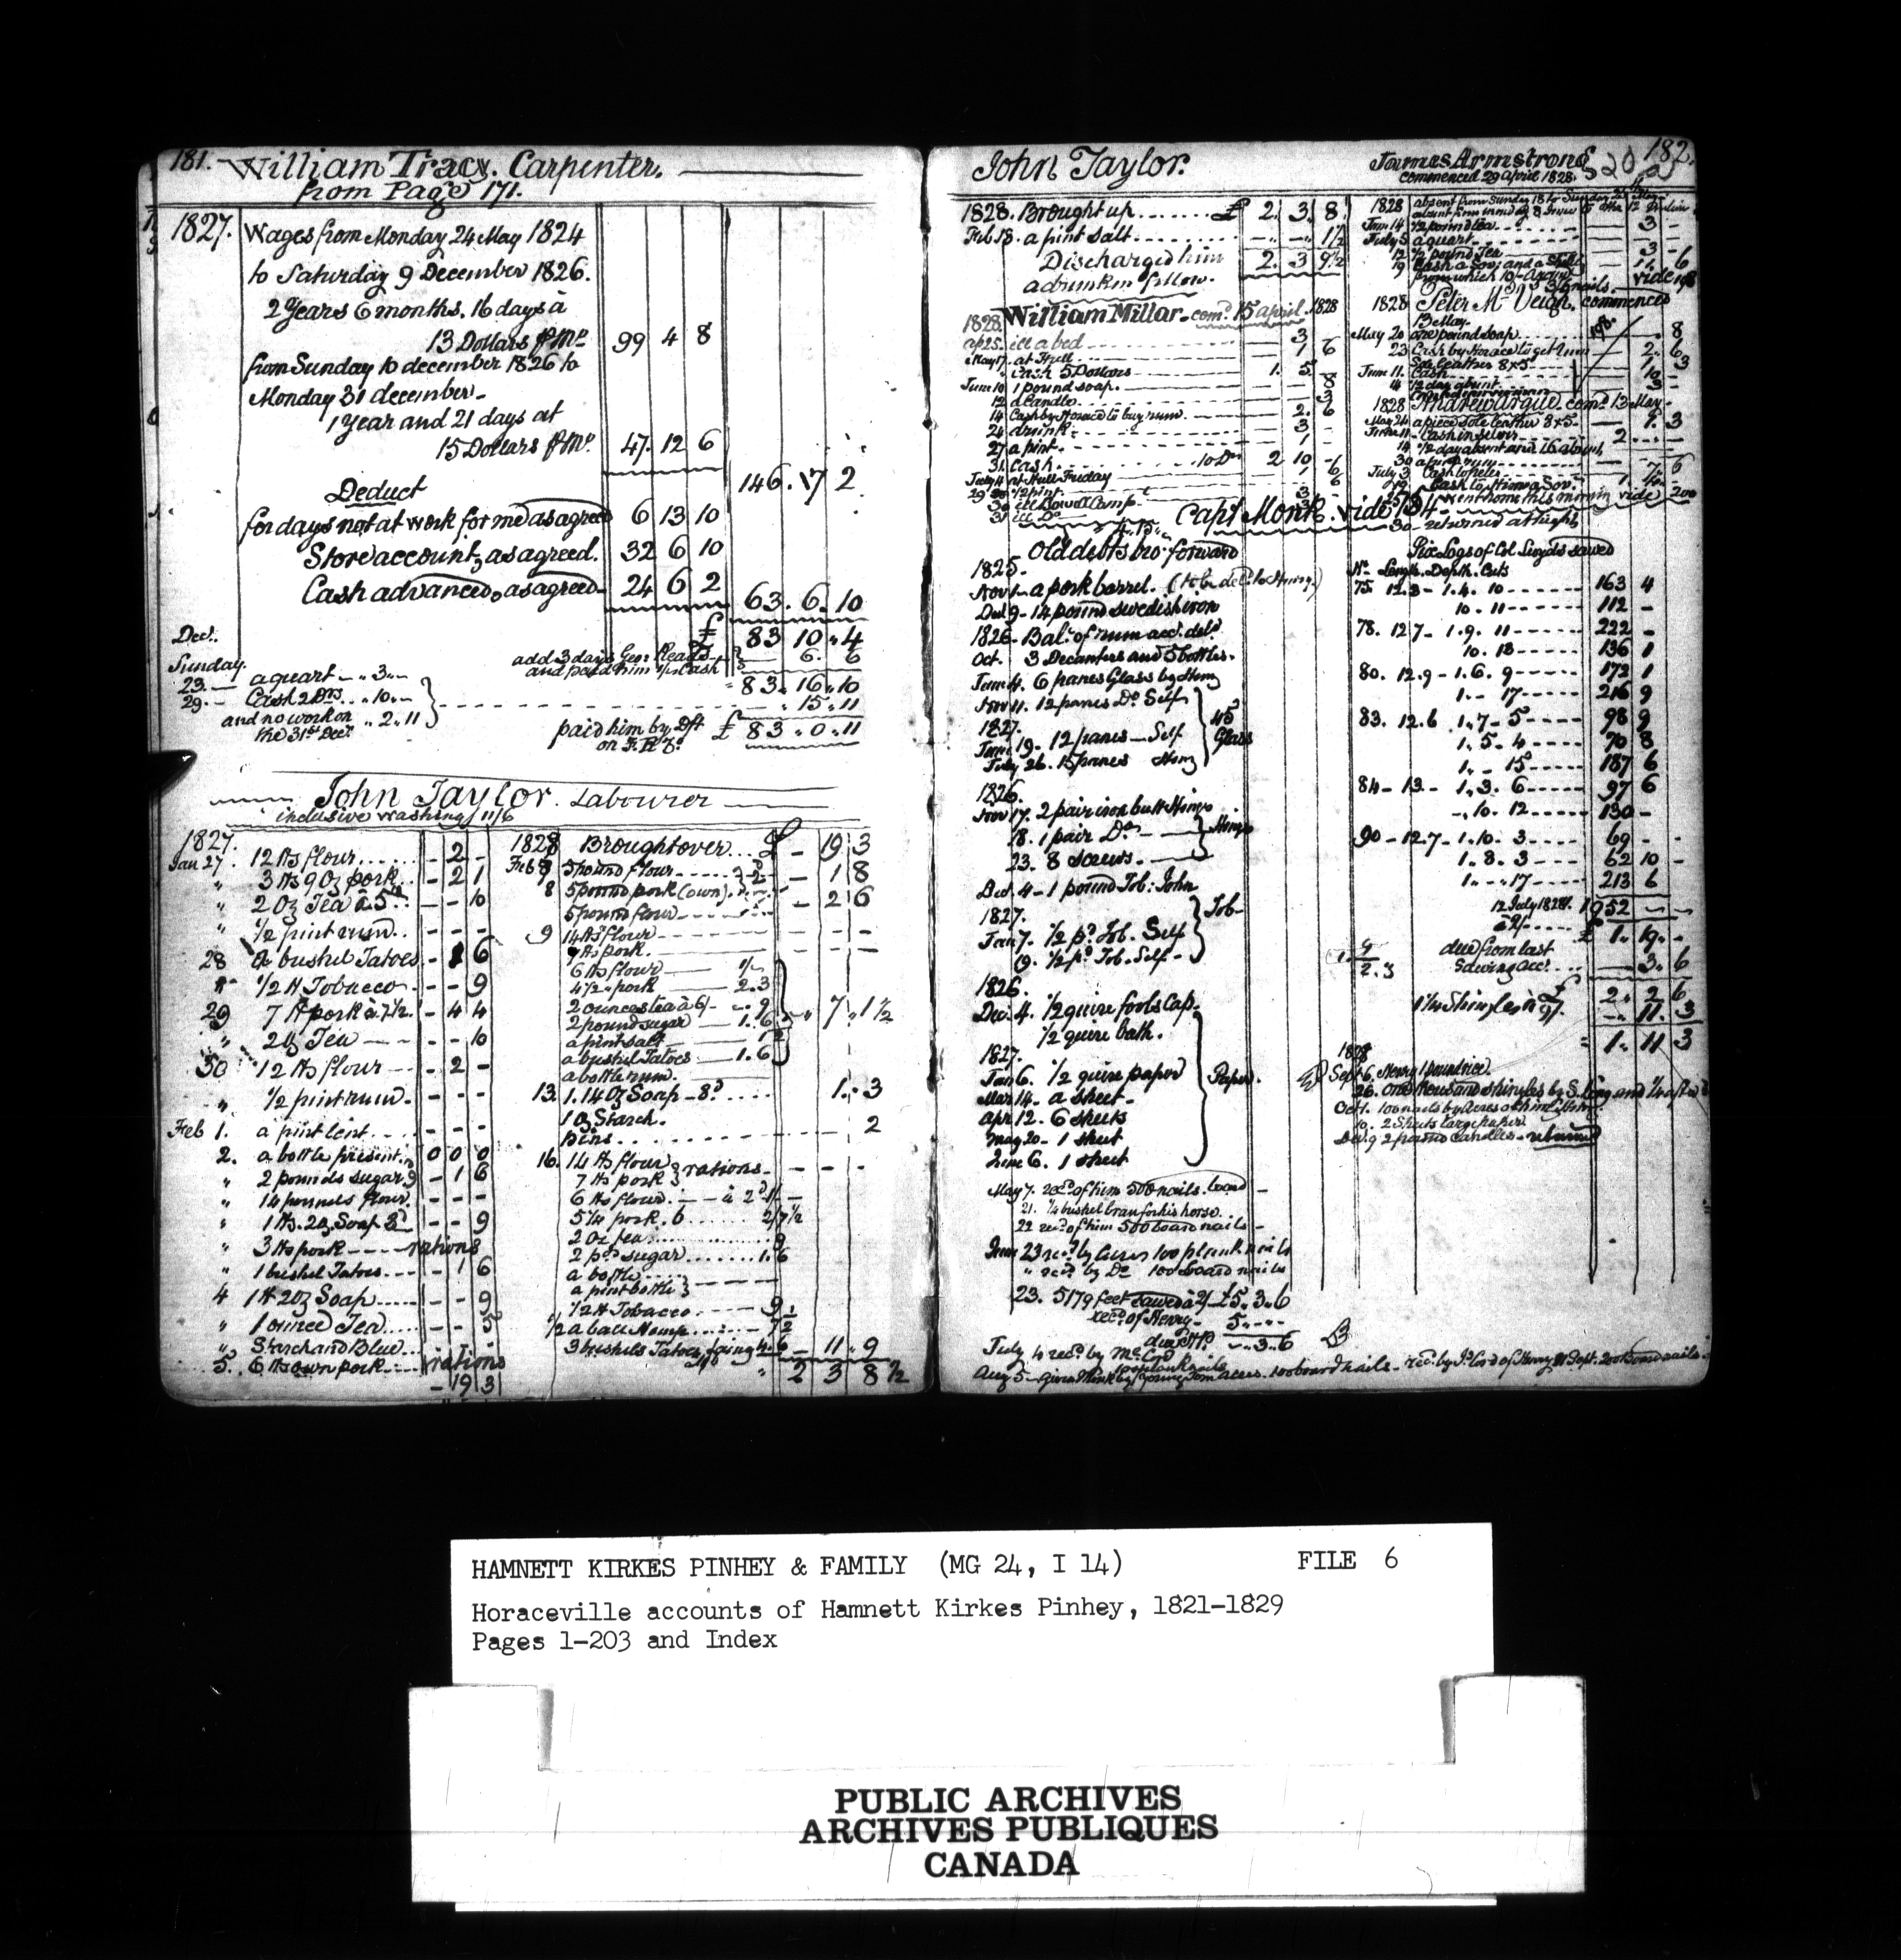 181. William Tracy. Carpenter.
from Page 171.
1827. Wages from Monday 24 May 1824
to Saturday 9 December 1826.
2 Years 6 months. 16 days à
13 Dollars ⅌ Mo 99 4 8
from Sunday 10 december 1826 to
Monday 31 december -
1 Year and 21 days at
15 Dollars ⅌ Mo 47. 12 6
146. 17 2
Deduct
for days not at work for me as agreed 6 13 10
Store account, as agreed. 32 6 10
Cash advanced, as agreed - 24 6 2
63. 6. 10
£ 83 10 .. 4
Decr.
Sunday.
add 3 days Geor. Read's
and paid him in Cash 6. 6
83. 16. 10
23. - a quart - .. 3 ..-
29. - Cash 2 Drs. .. 10 ..-
and no work on .. 2 .. 11
the 31st Decr.
.. 15 .. 11
paid him by Dft £ 83 .. 0 .. 11
John Taylor. Labourer
inclusive washing 11/6
1827.
Jan 27. 12 lbs flour - 2 -
" 3 lbs 9 oz pork - 2 1
" 2 oz Tea - - 10
" 1/2 pint rum - - -
28 a bushel Tatoes - 1 6
" 1/2 lb Tobacco - - 9
29 7 lb pork à 7 1/2 - 4 4
" 2 oz Tea - - 10
30 12 lbs flour - 2 -
" 1/2 pint rum - - -
Feb 1. a pint lent - - -
2. a bottle present. 0 0 0
" 2 pounds sugar 9 - 1 6
" 14 pounds flour. - - -
" 1 lb. 2 oz. Soap 8d - - 9
" 3 lbs pork ---- rations
" 1 bushel Tatoes - 1 6
4 1 lb 2 oz Soap - - 9
" 1 ounce Tea - - 5
" Starch and Blue
5. 6 lbs own pork rations
- 19 3
1828 Brought over £ - 19 3
Feb 8 5 pound flour - 1 8
8 5 pound pork (own) - 2 6
5 pound flour
9 14 lbs flour - - -
7 lbs pork. - - -
6 lbs flour 1/-
4 1/2 .. pork 2.3
2 ounces tea à 6/- .. 9
2 pound sugar 1. 6
a pint salt
a bushel Tatoes 1.6
.. 7 .. 1 1/2
a bottle rum.
13. 1. 14 oz Soap - 8d 1. 3
1 oz Starch.
pins 2
16. 14 lbs flour
7 lbs pork } rations - - -
6 lbs flour. à 2d 1/-
5 1/4 pork. 6 2/7 1/2
2 oz tea 9
2 pd sugar 1.6
a bottle
a pint bottle
1/2 lb Tobacco 9
1/2 a ball Hemp 7 1/2
3 bushels Tatoes 4.6 - 11 .. 9
" 2 3 8 1/2
John Taylor.
1828. Brought up £ 2. 3. 8.
Feb 18. a pint salt - - 1 1/2
Discharged him 2. 3 9 1/2
a drunken fellow.
1828. William Millar - comd. 15 april. 1828
ap 25. ill a bed 3 -
May 17. at Hull 1 6
" Cash 5 Dollars 1. 5 -
June 10 1 pound soap 8
12 a Candle 3
14 Cash by Horace to buy rum 2. 6
24 drunk 3 -
27 a pint 1 -
31. Cash 10 Drs 2 10 -
July 4 at Hull Friday 1 6
29 1/2 pint 6
Capt Monk. vide 134 -
Old debts bro: forward
1825.
Novr a pork barrel.
Decr 9 - 14 pound swedish iron
1826. Balce of rum acct. deld
Oct. 3 Decanters and 5 bottles.
June 4. 6 panes Glass by Henry
Nov 11. 12 panes Do. Self
1827.
June 19 - 12 panes - Self
July 26. 15 panes Henry
45 Glass
1826.
Nov 17. 2 pair iron butt Hinges
18. 1 pair Do
23. 8 screws.
Decr. 4 - 1 pound Tob: John
1827.
Jan 7. 1/2 pd Tob. Self
19. 1/2 pd Tob. Self -
Tob -
1826.
Dec. 4. 1/2 quire fools Cap.
1/2 quire bath.
1827.
Jan 6. 1/2 quire paper
Mar 14 - a sheet.
Apr 12. 6 sheets
May 20 - 1 sheet
June 6. 1 sheet
Paper.
May 7. recd of him 500 nails. board -
21. 1/4 bushel bran for his horse.
22 recd of him 500 board nails -
June 23 recd by Acres 100 plank nails
" recd by Do 100 board nails
23. 5179 feet sawed à 2/ £5. 3. 6
recd of Henry - 5 .. - ..
due HP .. 3 .. 6
July 4 recd by Mc Cord
100 plank nails
Aug 5 - given Monk by young Tom Acres. 100 board nails - recd. by Jno Cord of Henry Sept. 200 board nails -
James Armstrong 182.
commenced 29 april 1828.
1828 absent from Sunday 18 to Sunday
June 14 1/2 pound tea 3 -
July 5 a quart
12 1/2 pound Tea 3 - 6
19 Cash a Sov: and a Shillg 1. 1. 6
vide 198
1828 Peter Mc Veigh. commenced
13 May.
May 20 one pound soap 8
23 Cash by Horace to get rum 2. 6
Sole leather 8 x 5 1. 3
June 11. Cash 10 -
14 1/2 day absent 3 -
1828 Andrew Argue. comd. 13 May -
May 24 a piece Sole leather 8 x 5 1. 3
June 11 - Cash in silver 2
14 1/2 day absent and 16 absent
July 3 Cash to Peter 7. 6
went home this morning vide 200
30 - returned at night
Six Logs of Col Lloyds sawed
No Length. Depth. Cuts
75. 12.3 - 1.4. 10 163 4
10 - 11 112 -
78. 12 7 - 1.9. 11 222 -
10. 13 136 1
80. 12.9 - 1.6. 9 172 1
1. - 17 216 9
83. 12.6 1.7 - 5 98 9
1. 5. 4 70 8
1. - 15 187 6
84 - 13 - 1. 3. 6 97 6
-. 10. 12 130 -
90 - 12.7 - 1.10. 3 69 -
1. 8. 3 62 10
1. - 17 213 6
12 July 1828. 1952
à 2/- £ 1. 19. -
due from last
Sawing acct. 3. 6
£ 2. 2 6
1 1/4 Shingles à 9/. .. 11. 3
" 1. 11 3
1828
Sept 6. Henry 1 pound rice.
26. One thousand shingles by S. Long and 1/4 after
Oct. 100 nails by Acres
10. 2 Sheets large paper
Dec. 9 2 pound Candles - returned
HAMNETT KIRKES PINHEY & FAMILY (MG 24, I 14) FILE 6
Horaceville accounts of Hamnett Kirkes Pinhey, 1821-1829
Pages 1-203 and Index
PUBLIC ARCHIVES
ARCHIVES PUBLIQUES
CANADA